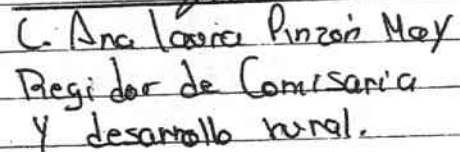 C. Ana Laura Pinzón May
Regidor de Comisaria
y desarrollo rural.